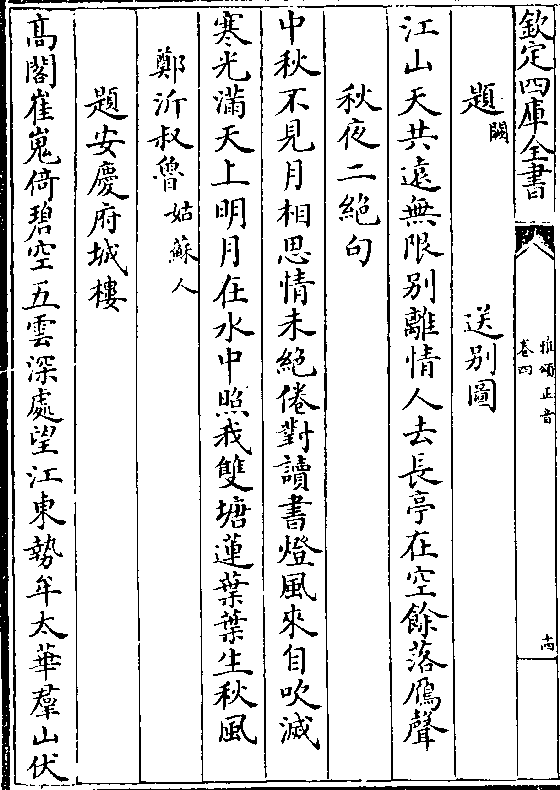 欽定四庫全書
雅頌正音
卷四
十四
題闕　送别圖
江山天共遠無限别離情人去長亭在空餘落鴈聲
秋夜二絶句
中秋不見月相思情未絶倦對讀書燈風來自吹滅
寒光滿天上明月在水中照我雙塘蓮葉葉生秋風
鄭沂叔魯姑蘇人
題安慶府城樓
髙閣崔嵬倚碧空五雲深處望江東勢牟太華羣山伏